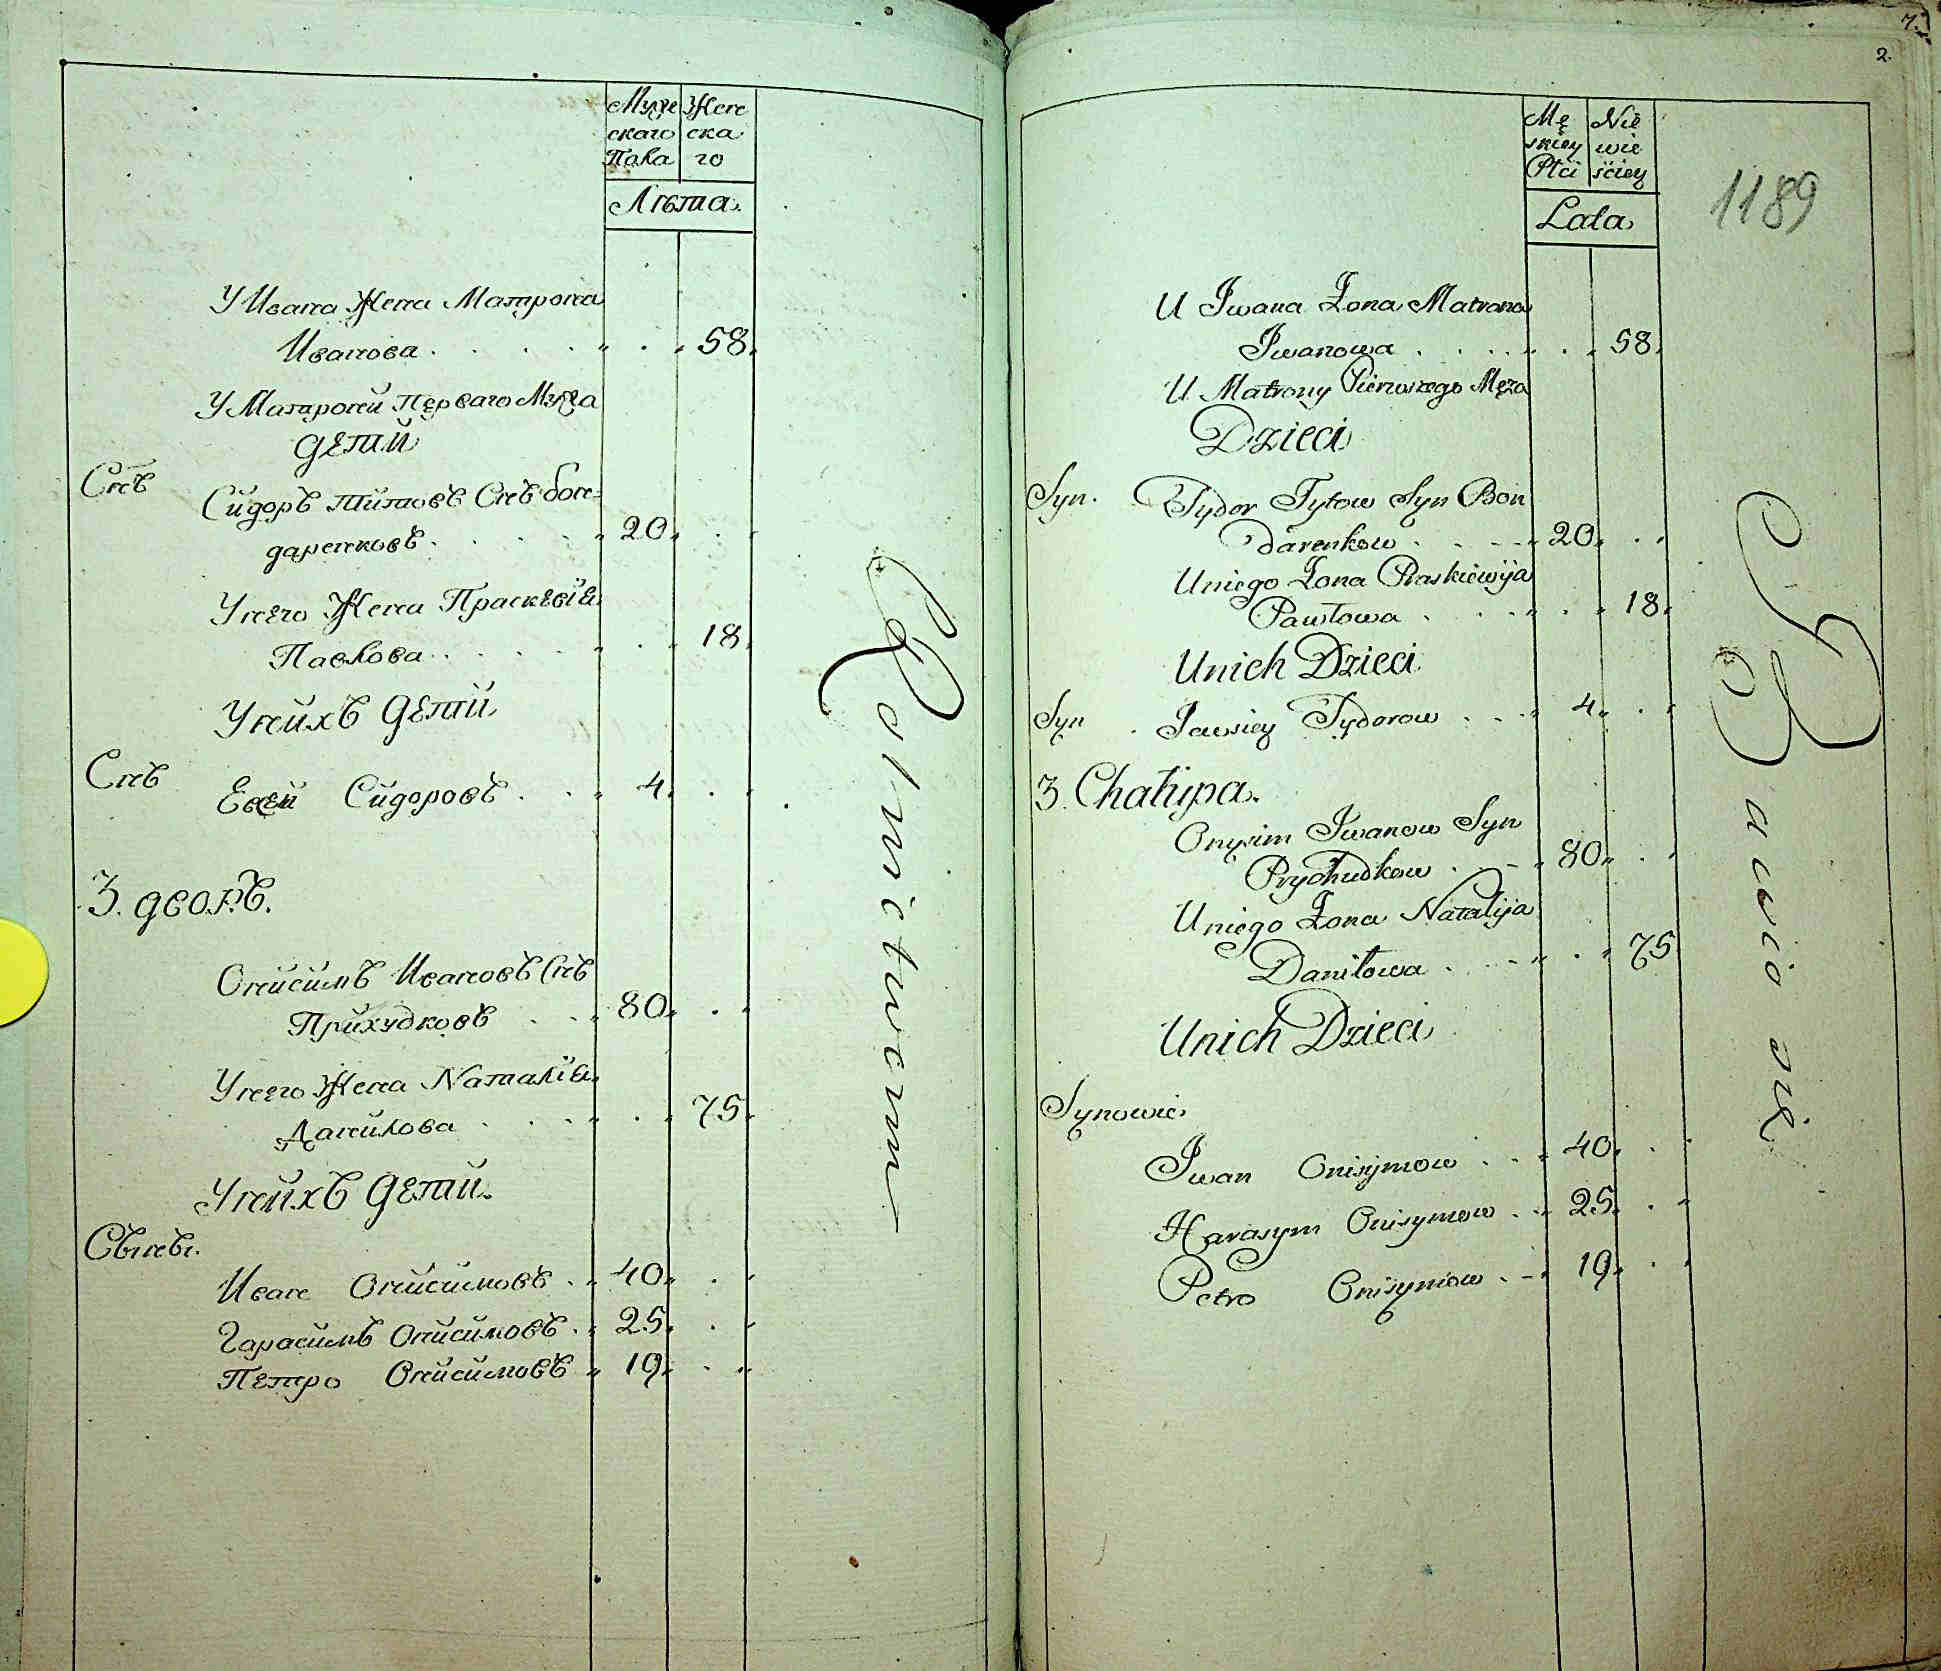 Муже
скаго
Пола
Жен
ска
го
Лѣта.
У Ивана Жена Матрона
Иванова . . . . " . " 58.
У Матроней Перваго Мужа
Дети
Снъ
Сидоръ Титовъ Снъ бон=
даренковъ . . . . " 20. . .
У него Жена Праскевiя
Павлова . . . . " . " 18.
У нихъ Дети
Снъ
Евсей Сидоровъ . . " 4. . .
3. дворъ.
Онисимъ Ивановъ Снъ
Прихудковъ . . " 80. . "
У него Жена Наталiя
Данилова . . . " . " 75.
У нихъ Дети.
Сыны.
Иванъ Онисимовъ . " 40. . "
Гарасимъ Онисимовъ . " 25. . "
Петро Онисимовъ " 19. . "
Rolnictwem
7.
2.
Mę
skiey
Płci
Nie
wie
ściey
Lata
1189
U Iwana Żona Matrona
Iwanowa . . . . " . " 58.
U Matrony Pierwszego Męża
Dzieci
Syn.
Sydor Tytow Syn Bon
darenkow . . . . " 20. . "
Uniego Żona Praskiewija
Pawłowa . . . . " . " 18.
Unich Dzieci
Syn
Jawsiey Sydorow . . . " 4. . "
3. Chałupa.
Onysim Iwanow Syn
Prychudkow . . " 80. . "
Uniego Żona Natalija
Daniłowa . . . " . " 75
Unich Dzieci
Synowie
Iwan Onisymow . . " 40. . "
Harasym Onisymow . . " 25. . "
Petro Onisymow . . " 19. . "
Bawio się